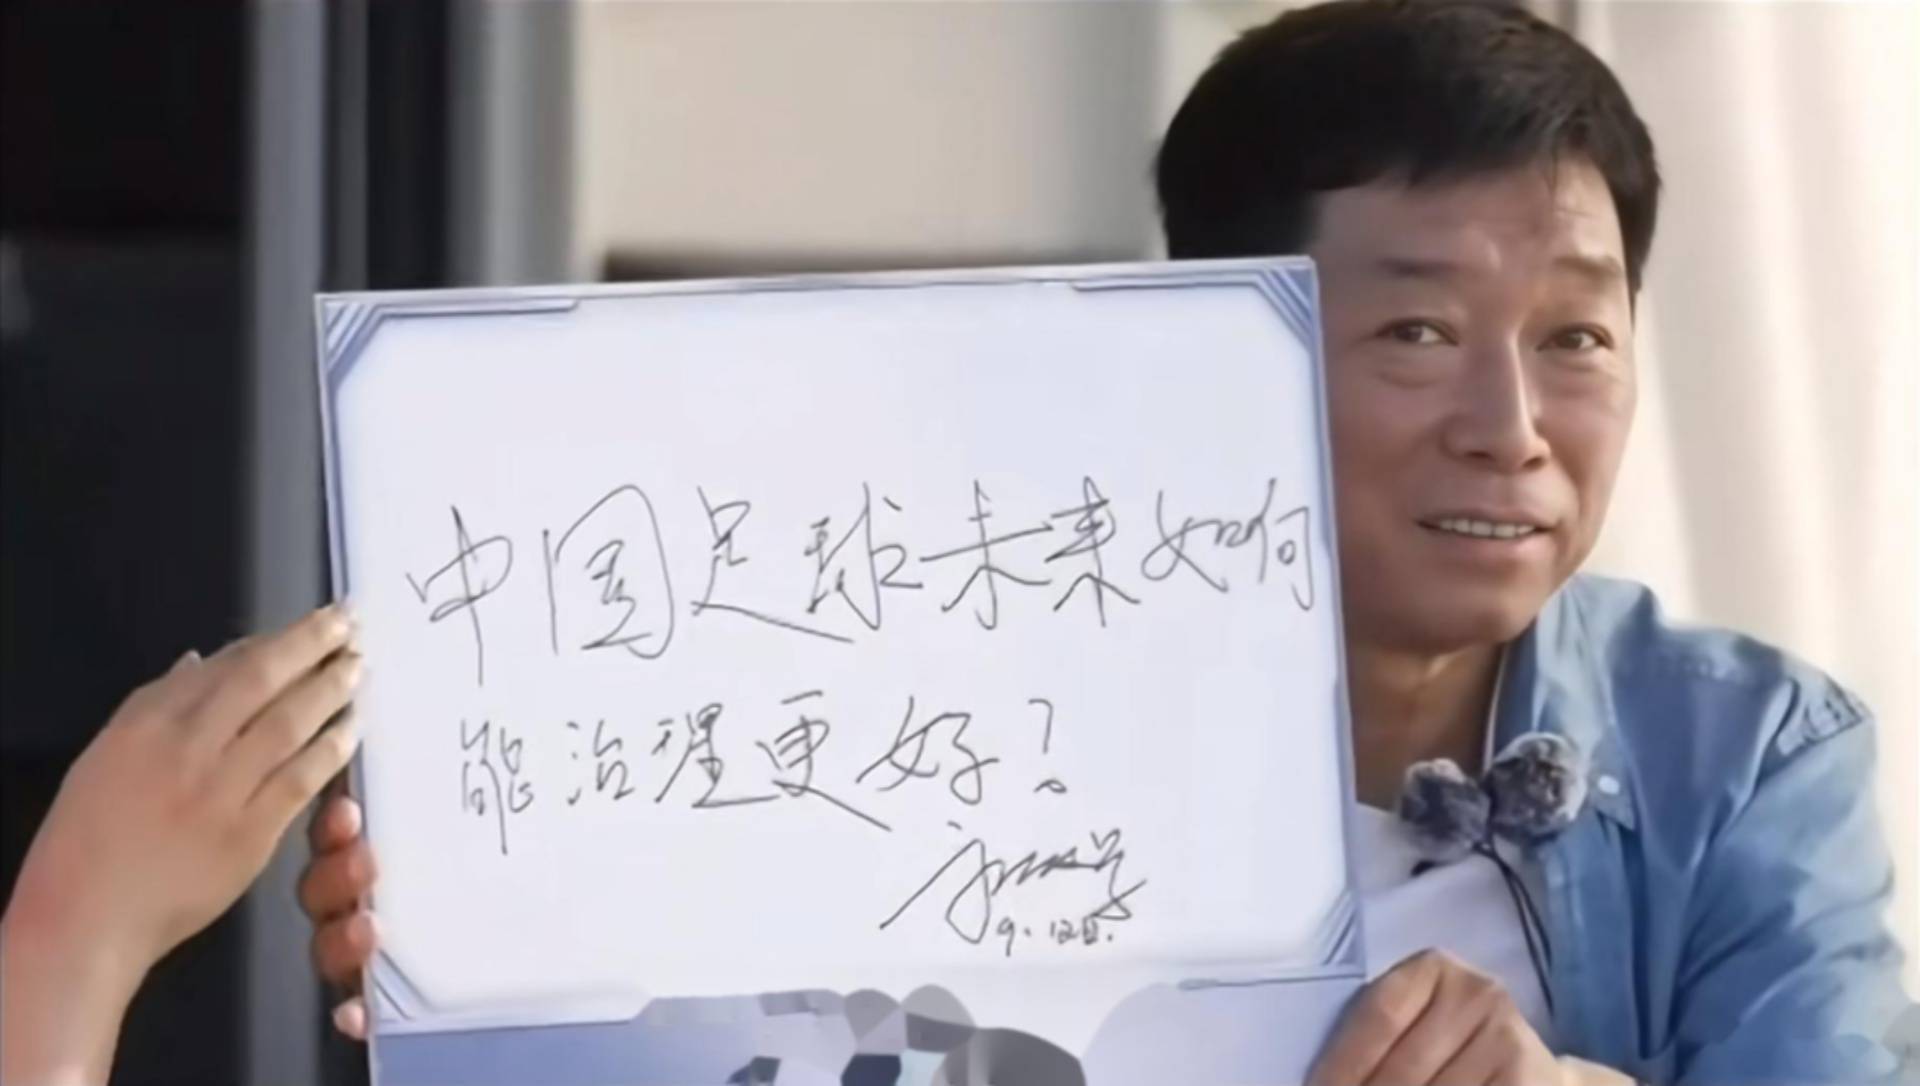 中国足球未来如何
能治理更好?
9.12日.